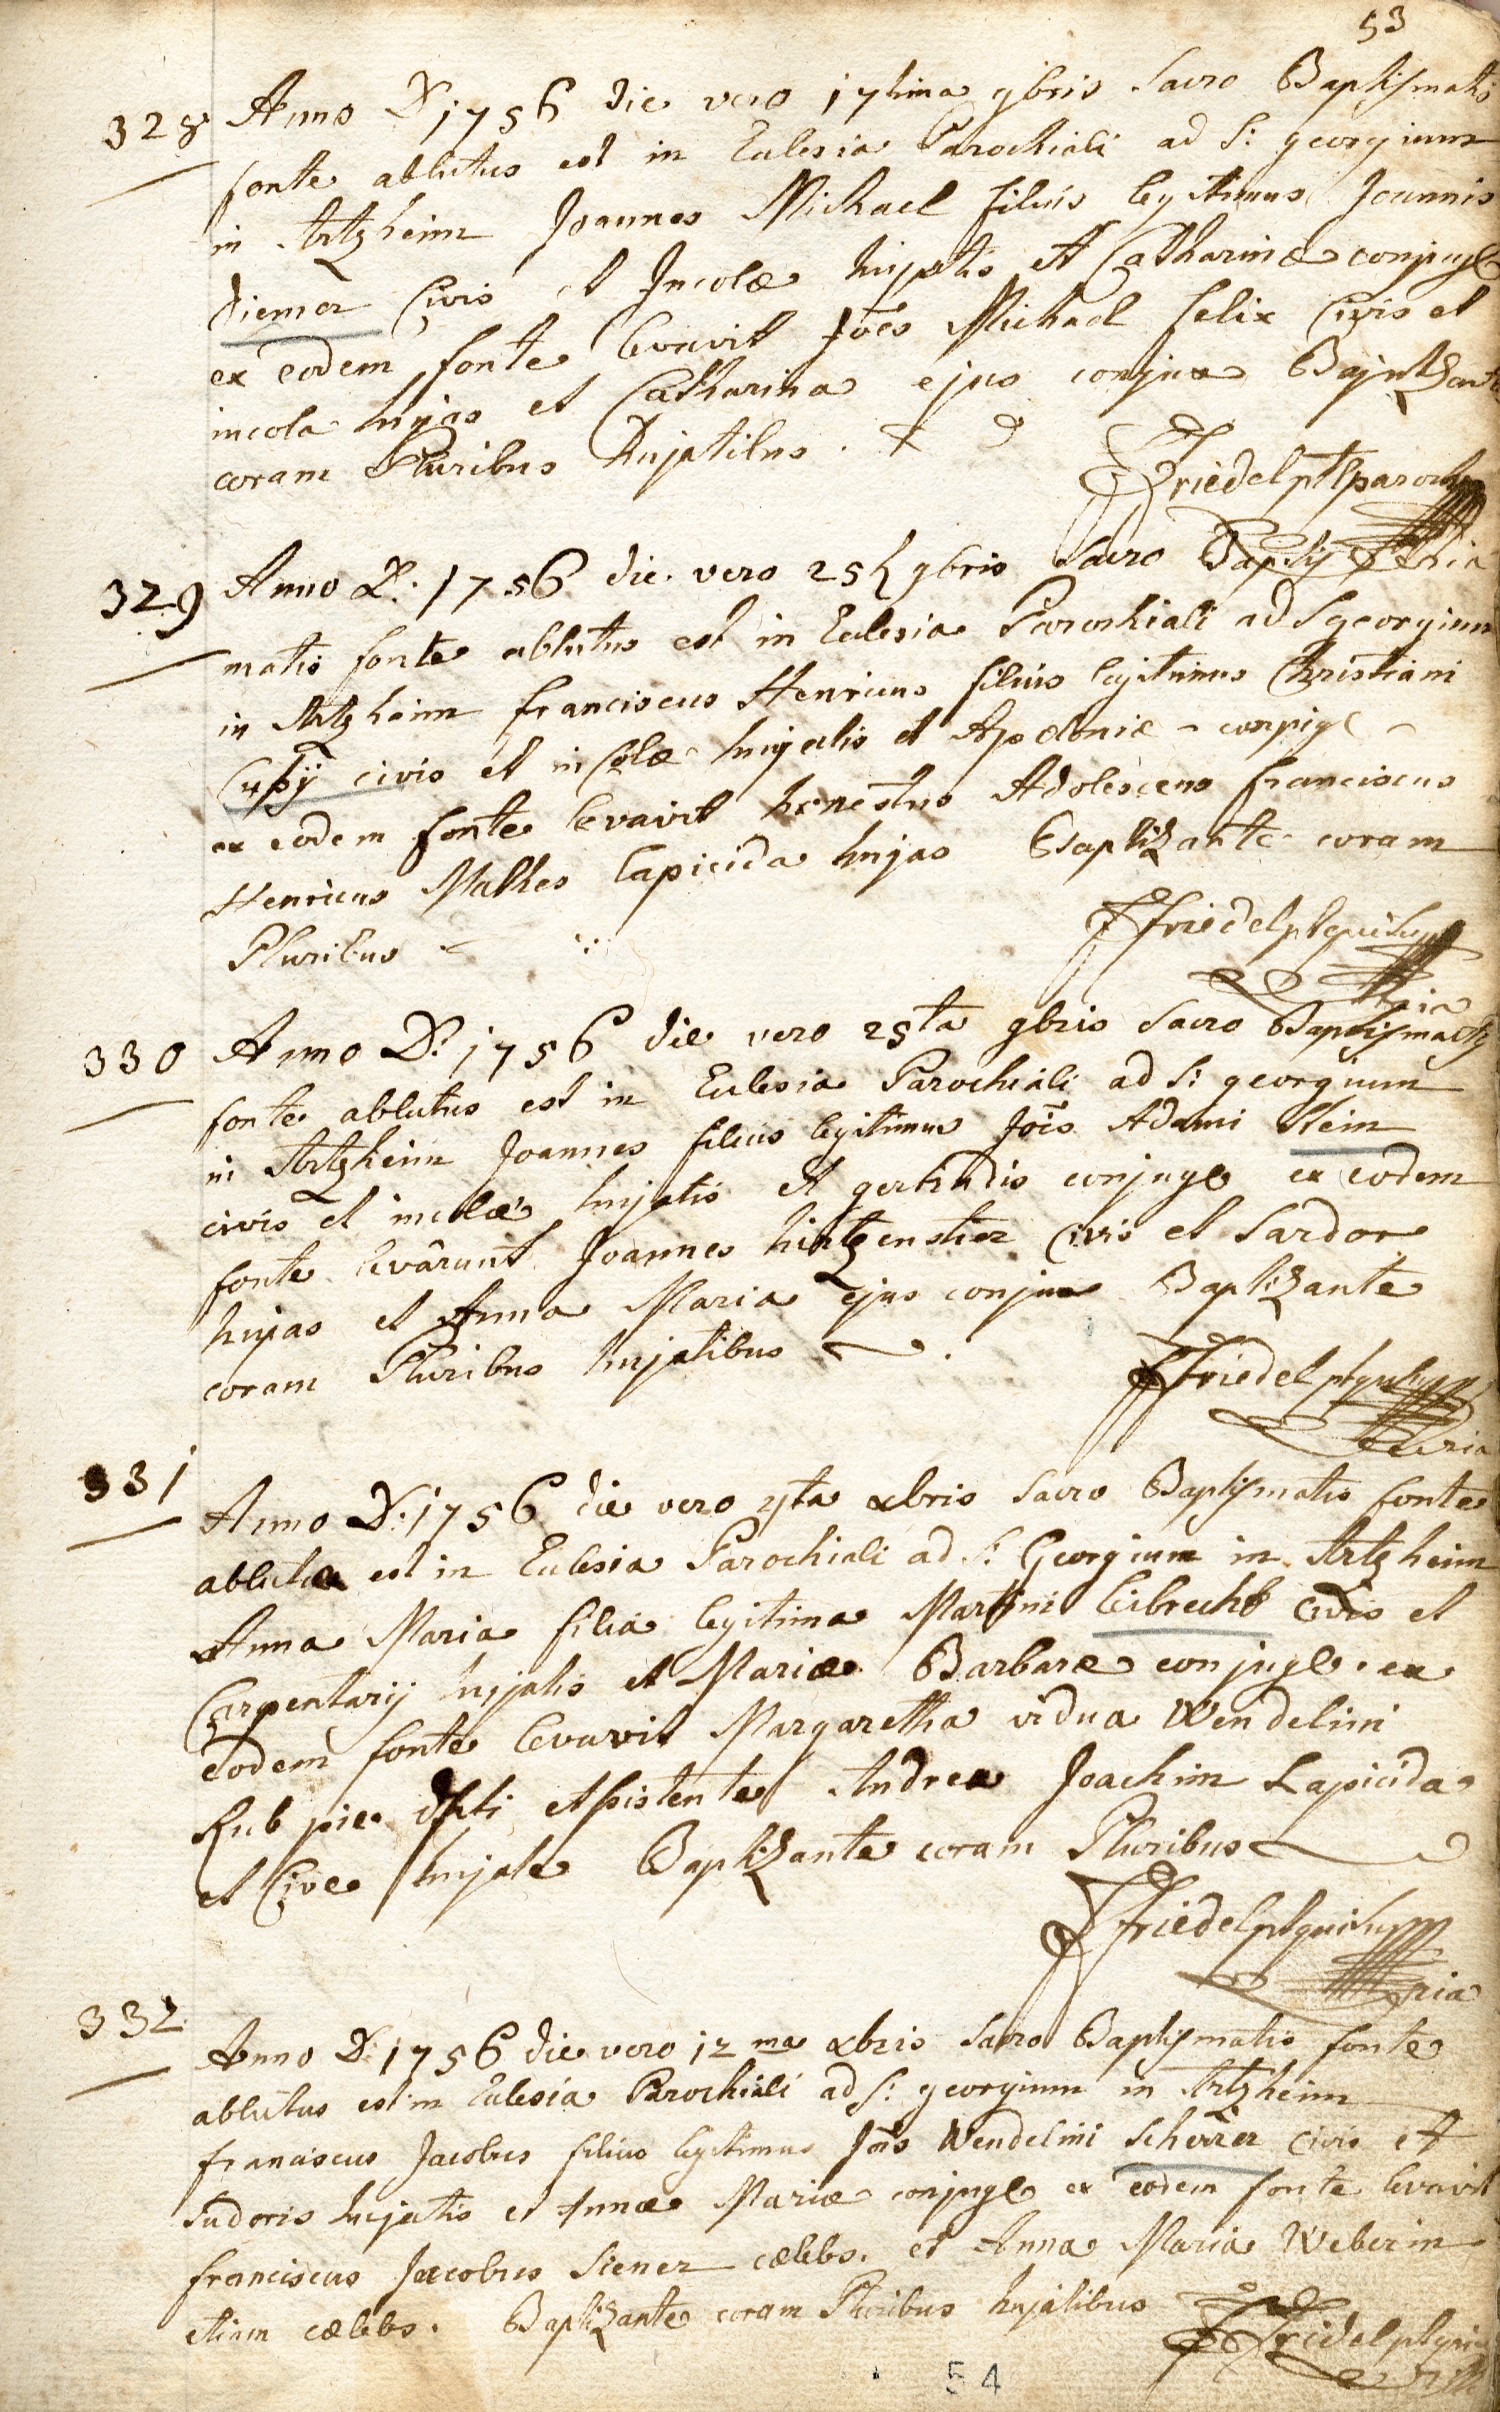 53
328 Anno D 1756 die vero 17tima 9bris Sacro Baptismatis
fonte ablutus est in Eclesia Parochiali ad S: georgium
in Artzheim Joannes Michael filius legitimus Joannis
Diemer Civis et Incolæ hujatis et Catharinæ conjuge
ex eodem fonte levavit Joes Michael felix Civis et
incola hujas et Catharina ejus conjux Baptizante
coram Pluribus hujatibus.
Friedel parochus
329 Anno D: 1756 die vero 25 9bris Sacro Baptis
matis fonte ablutus est in Eclesia Parochiali ad S georgium
in Artzheim franciscus Henricus filius legitimus Christiani
civis et incolæ hujatis et Apoloniæ - conjuge -
ex eodem fonte levavit honestus Adolescens franciscus
Henricus Mathes lapicida hujas Baptizante coram
Pluribus
Friedel
330 Anno D: 1756 die vero 25ta 9bris Sacro Baptismatis
fonte ablutus est in Eclesia Parochiali ad S: georgium
in Artzheim Joannes filius legitimus Jois Adami Stein
civis et incolæ hujatis et gertrudis conjuge ex eodem
fonte levârunt Joannes hintzenstier Civis et Sardor
hujas et Anna Maria ejus conjux Baptizante
coram Pluribus hujatibus.
Friedel
331 Anno D: 1756 die vero xbris Sacro Baptismatis fonte
ablutæ est in Eclesia Parochiali ad S: Georgium in Artzheim
Anna Maria filia legitima Martini leibrecht Civis et
Carpentarij hujatis et Mariæ Barbaræ conjuge. ex
eodem fonte levavit Margaretha vidua Wendelini
Rub pie dfti Assistente Andrea Joachim Lapicida
et Cive hujate Baptizante coram Pluribus
Friedel
332 Anno D: 1756 die vero 12ma xbris Sacro Baptismatis fonte
ablutus est in Eclesia Parochiali ad S: georgium in Artzheim
franciscus Jacobus filius legitimus Jois Wendelini Scherrer Civis et
Sudoris hujatis et Annæ Mariæ conjuge ex eodem fonte levavit
franciscus Jacobus Siener cælebs. et Anna Maria Weberin
etiam cælebs. Baptizante coram Pluribus hujatibus
Friedel
54